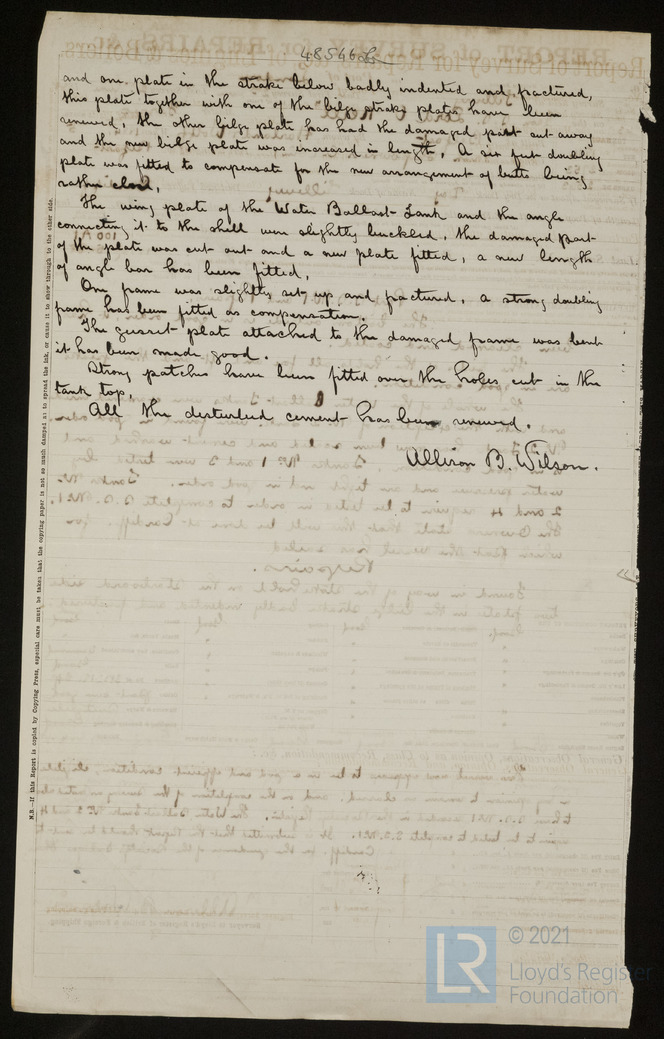 48546
and one plate in the strake below badly indented and fractured,
this plate together with one of the bilge strake plates have been
renewed, the other bilge plate has had the damaged part cut away
and the new bilge plate was increased in length, A six feet doubling
plate was fitted to compensate for the new arrangement of butts being
rather close,
The wing plate of the Water Ballast Tank and the angle
connecting it to the shell were slightly buckled, the damaged part
of the plate was cut out and a new plate fitted, a new length
of angle bar has been fitted,
One frame was slightly set up and fractured, a strong doubling
frame has been fitted as compensation.
The gusset plate attached to the damaged frame was bent
it has been made good.
Strong patches have been fitted over the holes cut in the
tank top,
All the disturbed cement has been renewed.
Allison B. Wilson.
N.B.—If this Report is copied by Copying Press, especial care must be taken that the copying paper is not so much damped as to spread the ink, or cause it to show through to the other side.
© 2021
Lloyd's Register
Foundation